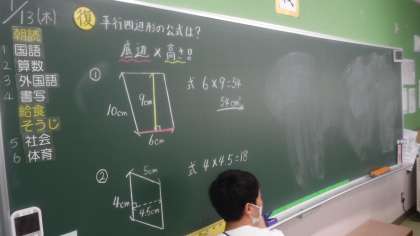 1/13(木)
復 平行四辺形の公式は?
朝読
底辺×高さ!!
1 国語
2 算数
3 外国語
4 書写
給食
そうじ
5 社会
6 体育
①
9cm
10cm
6cm
式 6×9=54
54cm²
②
5cm
4cm
4.5cm
式 4×4.5=18